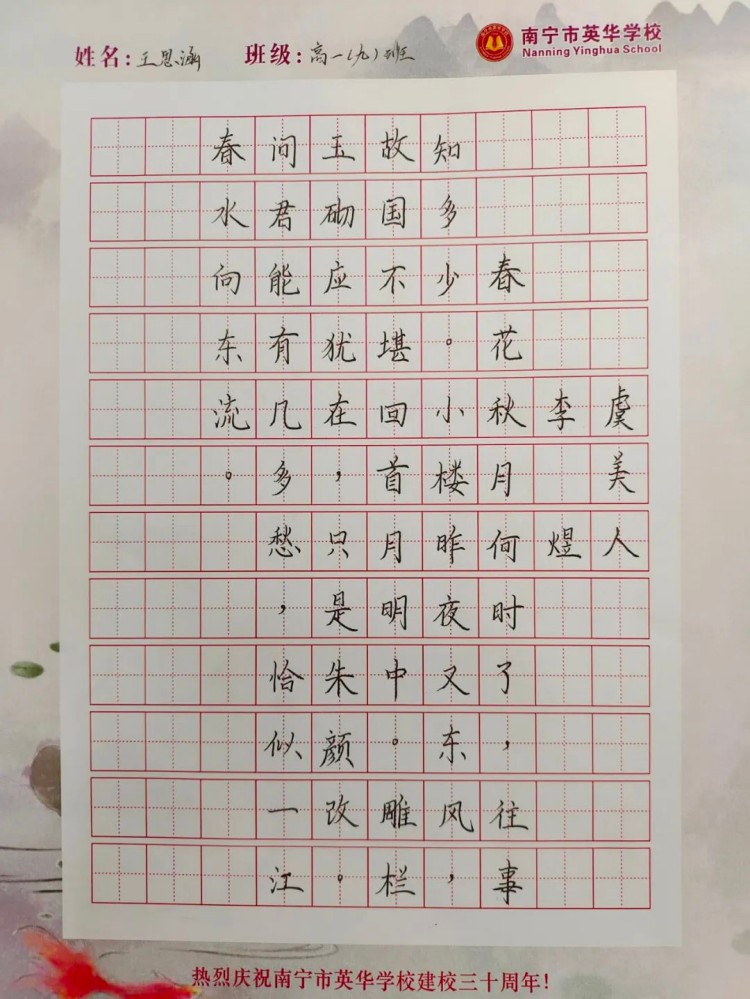 姓名：王思涵 班级：高一（九）班
南宁市英华学校
Nanning Yinghua School
虞美人
李煜
春花秋月何时了，往事
知多少。小楼昨夜又东风，
故国不堪回首月明中。雕栏
玉砌应犹在，只是朱颜改。
问君能有几多愁，恰似一江
春水向东流。
热烈庆祝南宁市英华学校建校三十周年！